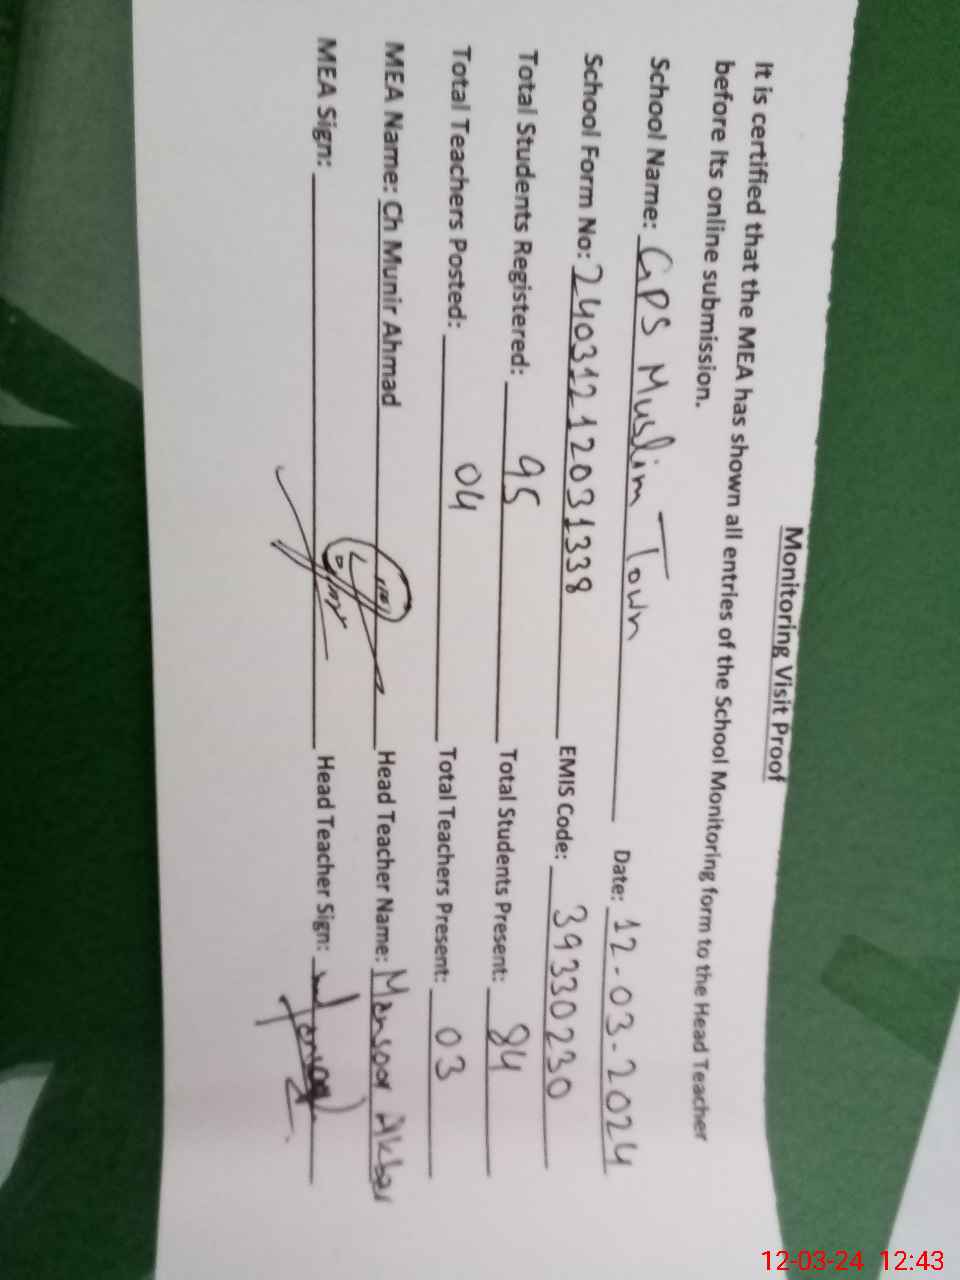 Monitoring Visit Proof
It is certified that the MEA has shown all entries of the School Monitoring form to the Head Teacher
before its online submission.
School Name: GPS Muslim Town Date: 12-03-2024
School Form No: 24031212031338 EMIS Code: 39330230
Total Students Registered: 95 Total Students Present: 84
Total Teachers Posted: 04 Total Teachers Present: 03
MEA Name: Ch Munir Ahmad Head Teacher Name: Mansoor Akbar
MEA Sign: Head Teacher Sign:
12-03-24 12:43